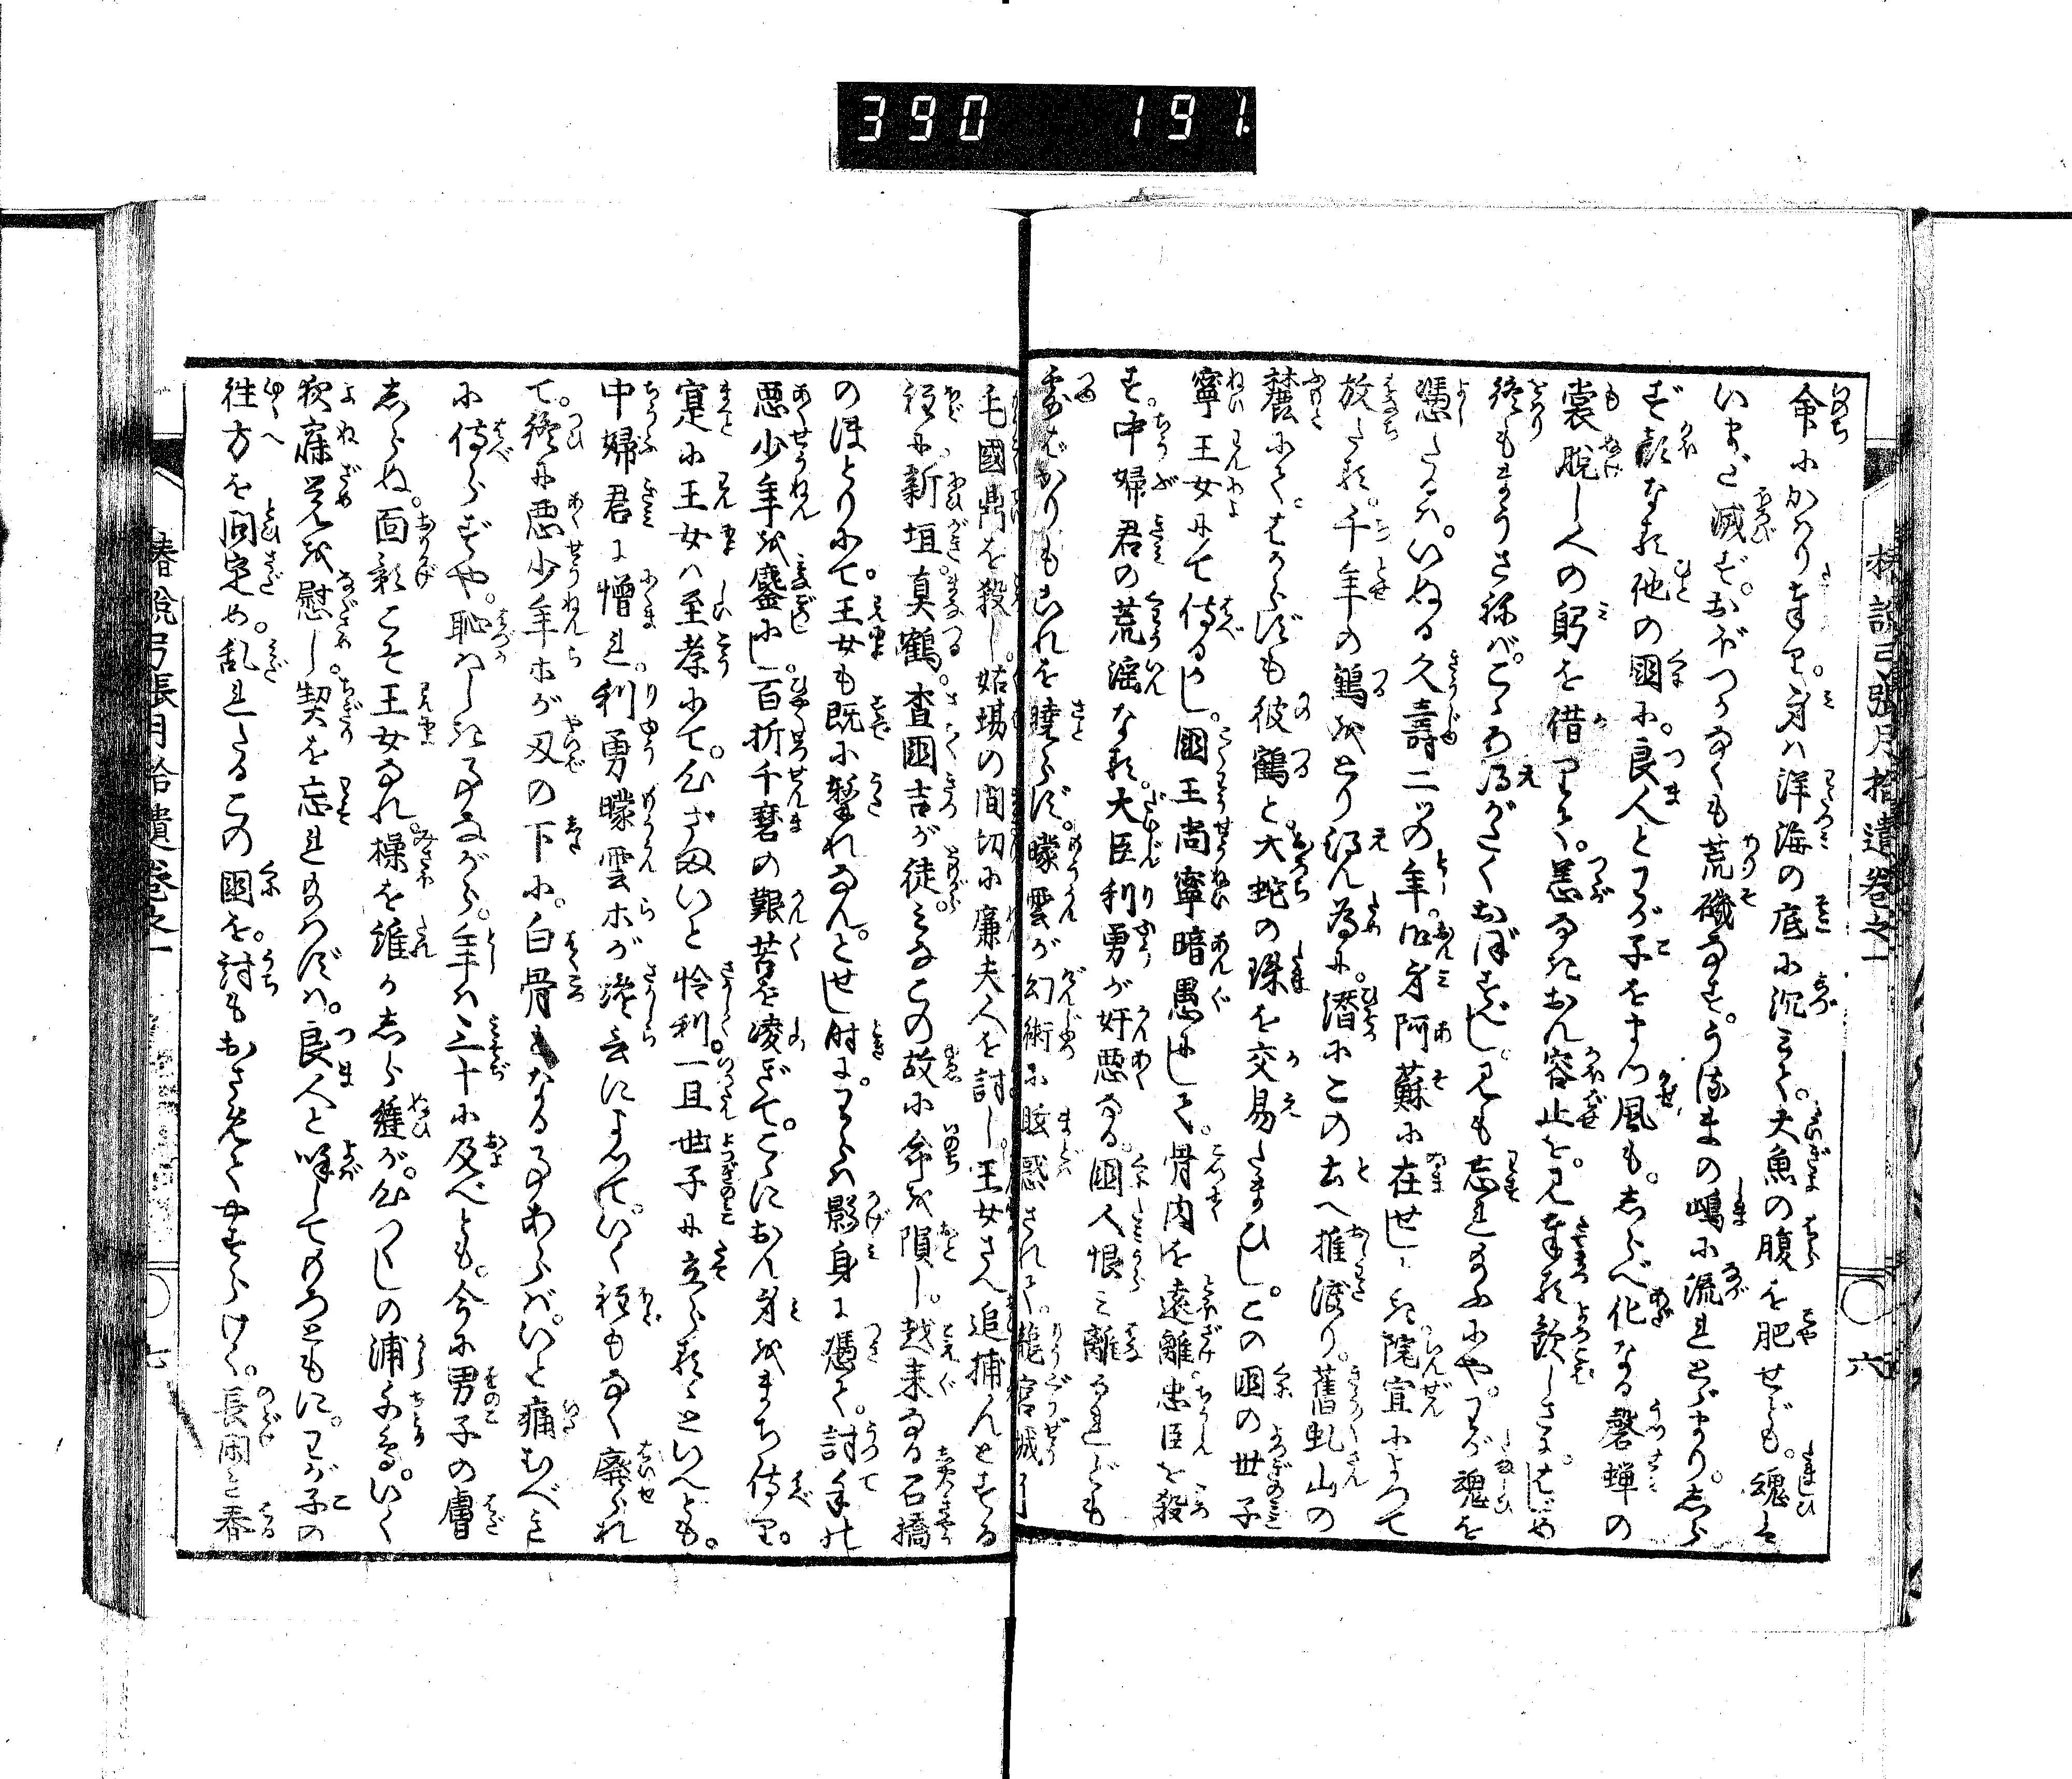 390 191
椿説弓張月拾遺巻之一 ○六
命にかはり奉り。身は洋海の底に沈みて。大魚の腹を肥せども。魂は
いまだ滅ず。おぼつかなくも荒磯なす。うるまの嶋に流れとゞまり。しら
ず顔なる他の國に。良人とわが子をまつ風も。しらべ化なる磬蝉の
裳脱し人の躬を借りて。恙なきおん容止を。見奉る歓しさに。はじめ
終もまうさねば。こゝろ得がたくおぼすべし。見も忘れ給ふにや。わが魂を
憑たるは。いぬる久壽二ッの年。御身阿蘇に在せしとき。院宣によつて
放たる。千年の鶴をとり得ん為に。潜にこの土へ推渡り。舊虬山の
麓にて。はからずも彼鶴と。大蛇の珠を交易たまひし。この國の世子
寧王女にて侍るかし。國王尚寧暗愚にして。骨肉を遠離。忠臣を殺
す。中婦君の荒淫なる。大臣利勇が奸悪なる。國人恨み離るれども
露ばかりもこれを暁らず。曚雲が幻術に眩惑されて。龍宮城に
毛國鼎を殺し。姑場の間切に廉夫人を討し。王女さへ追捕んとする
程に。新垣。真鶴。査國吉が徒。みなこの故に命を隕し。越来なる石橋
のほとりにて。王女も既に撃れなん。とせし時に。わらは影身に憑て。討手の
悪少年を鏖にし。百折千磨の艱苦を凌ぎて。こゝにおん身をまち侍り。
寔に王女は至孝にて。心ざまいと怜利。一旦世子に立られしといへども。
中婦君に憎まれ。利勇曚雲ホが讒言によつて。いく程もなく廃られ
て。終に悪少年ホが刃の下に。白骨となる事あらば。いと痛むべき
に侍らずや。恥かしき事ながら。年は三十に及べども。今に男子の膚
しらぬ。面影こそ王女なれ。操を誰かしら縫が。心つくしの浦千鳥。いく
夜寐覚を慰し。契を忘れ給はずは。良人と呼してもろともに。わが子の
往方を問定め。乱れたるこの國を。討もおさめてやすらけく。長閑き春
椿説弓張月拾遺巻之一 ○七